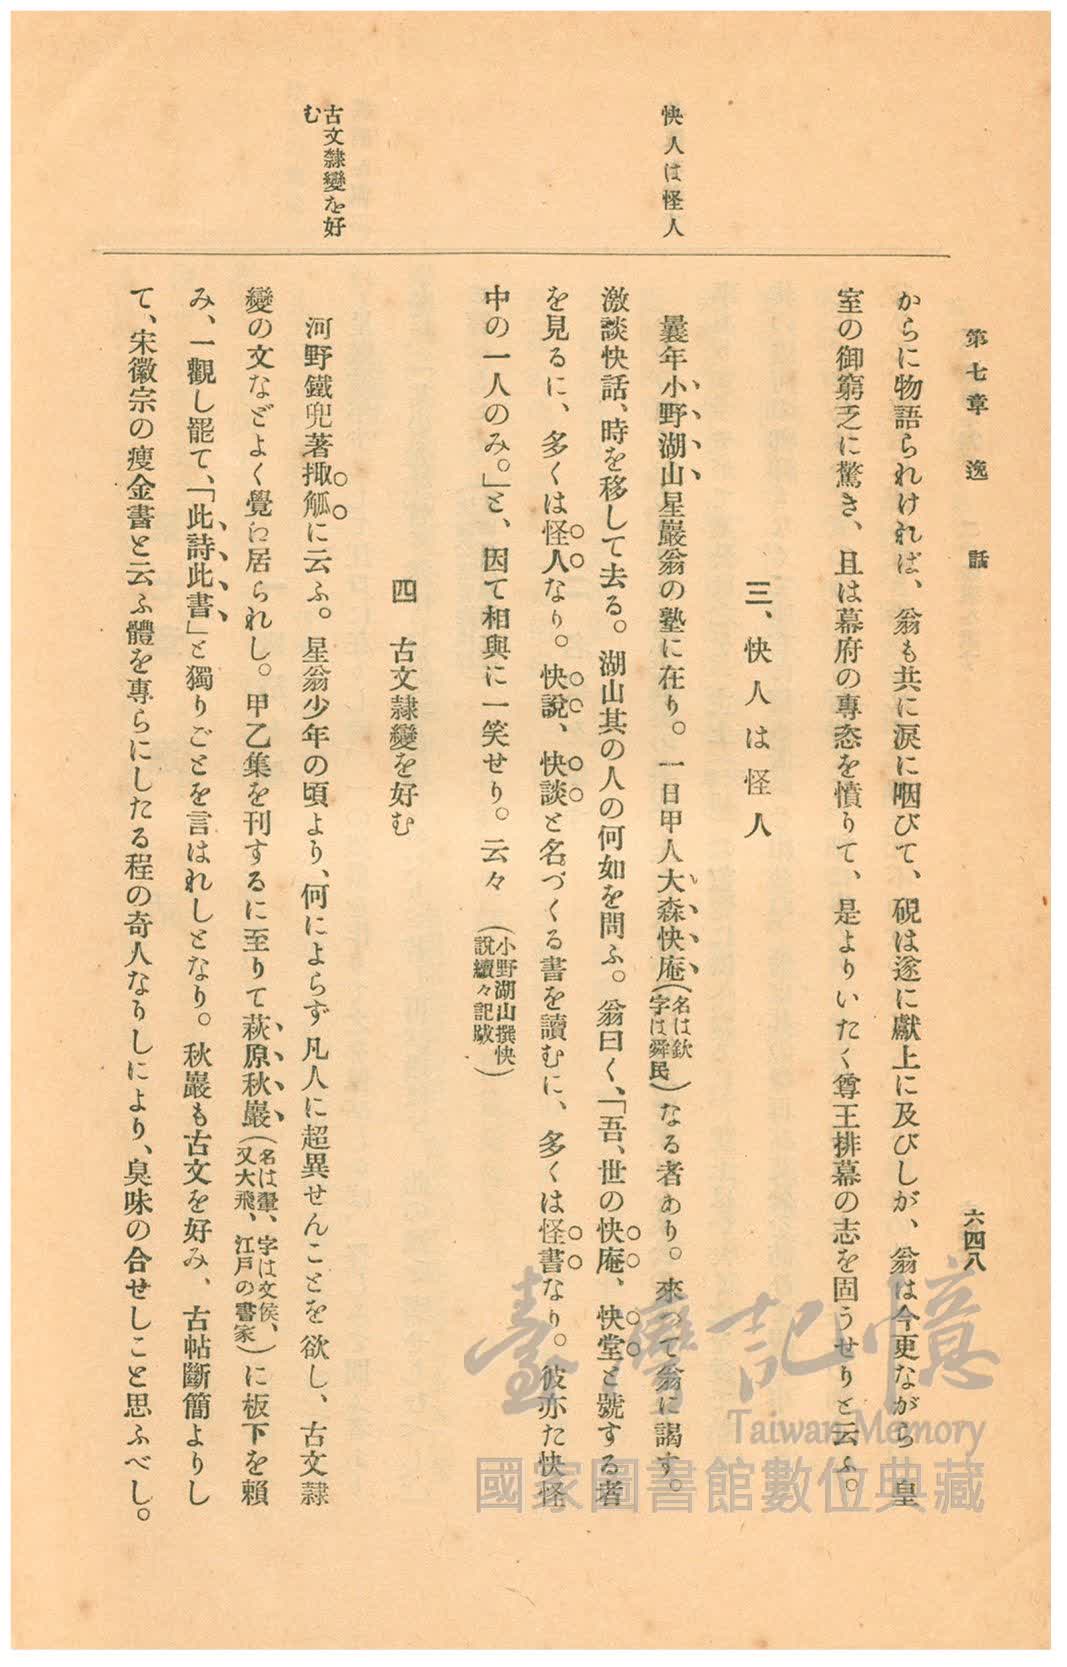 第七章 逸話
六四八
快人は怪人
古文隷變を好
む
からに物語られければ、翁も共に涙に咽びて、硯は遂に獻上に及びしが、翁は今更ながら皇
室の御窮乏に驚き、且は幕府の專恣を憤りて、是よりいたく尊王排幕の志を固うせりと云ふ。
三、快人は怪人
曩年小野湖山星巖翁の塾に在り。一日甲人大森快庵(名は欽字は舜民)なる者あり。來つて翁に謁す。
激談快話、時を移して去る。湖山其の人の何如を問ふ。翁曰く、「吾、世の快庵、快堂と號する者
を見るに、多くは怪人なり。快說、快談と名づくる書を讀むに、多くは怪書なり。彼亦た快怪
中の一人のみ。」と、因て相與に一笑せり。云々(小野湖山撰快說續々記跋)
四 古文隷變を好む
河野鐵兜著掫觚に云ふ。星翁少年の頃より、何によらず凡人に超異せんことを欲し、古文隷
變の文などよく覺に居られし。甲乙集を刊するに至りて萩原秋巖(名は翬、字は文侯、又大飛、江戸の書家)に板下を賴
み、一觀し罷て、「此詩此書」と獨りごとを言はれしとなり。秋巖も古文を好み、古帖斷簡よりし
て、宋徽宗の瘦金書と云ふ體を專らにしたる程の奇人なりしにより、臭味の合せしことと思ふべし。
臺灣記憶
Taiwan Memory
國家圖書館數位典藏